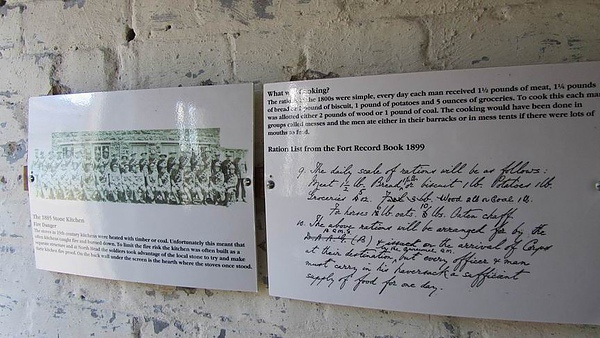 The 1885 Stone Kitchen
Fire Danger
The stoves in 19th century kitchens were heated with timber or coal. Unfortunately this meant that
often kitchens caught fire and burned down. To limit the fire risk the kitchen was often built as a
separate structure and at North Head the soldiers took advantage of the local stone to try and make
their kitchen fire proof. On the back wall under the screen is the hearth where the stoves once stood.
What cooking?
The rations in the 1800s were simple, every day each man received 1½ pounds of meat, 1¼ pounds
of bread or pound of biscuit, 1 pound of potatoes and 5 ounces of groceries. To cook this each man
was allotted either 2 pounds of wood or 1 pound of coal. The cooking would have been done in
groups called messes and the men ate either in their barracks or in mess tents if there were lots of
mouths to feed.
Ration List from the Fort Record Book 1899
9. The daily scale of rations will be as follows:
Meat lb. Bread or biscuit 1 lb. Potatoes 1 lb.
Groceries Wood 2 lb or Coal 1 lb.
For horses lb oats. lbs. Oaten chaff
10. The above rations will be arranged for by the
(B) & issued on the arrival of Corps
at their destination, but every officer & man
must carry in his haversack a sufficient
supply of food for one day.